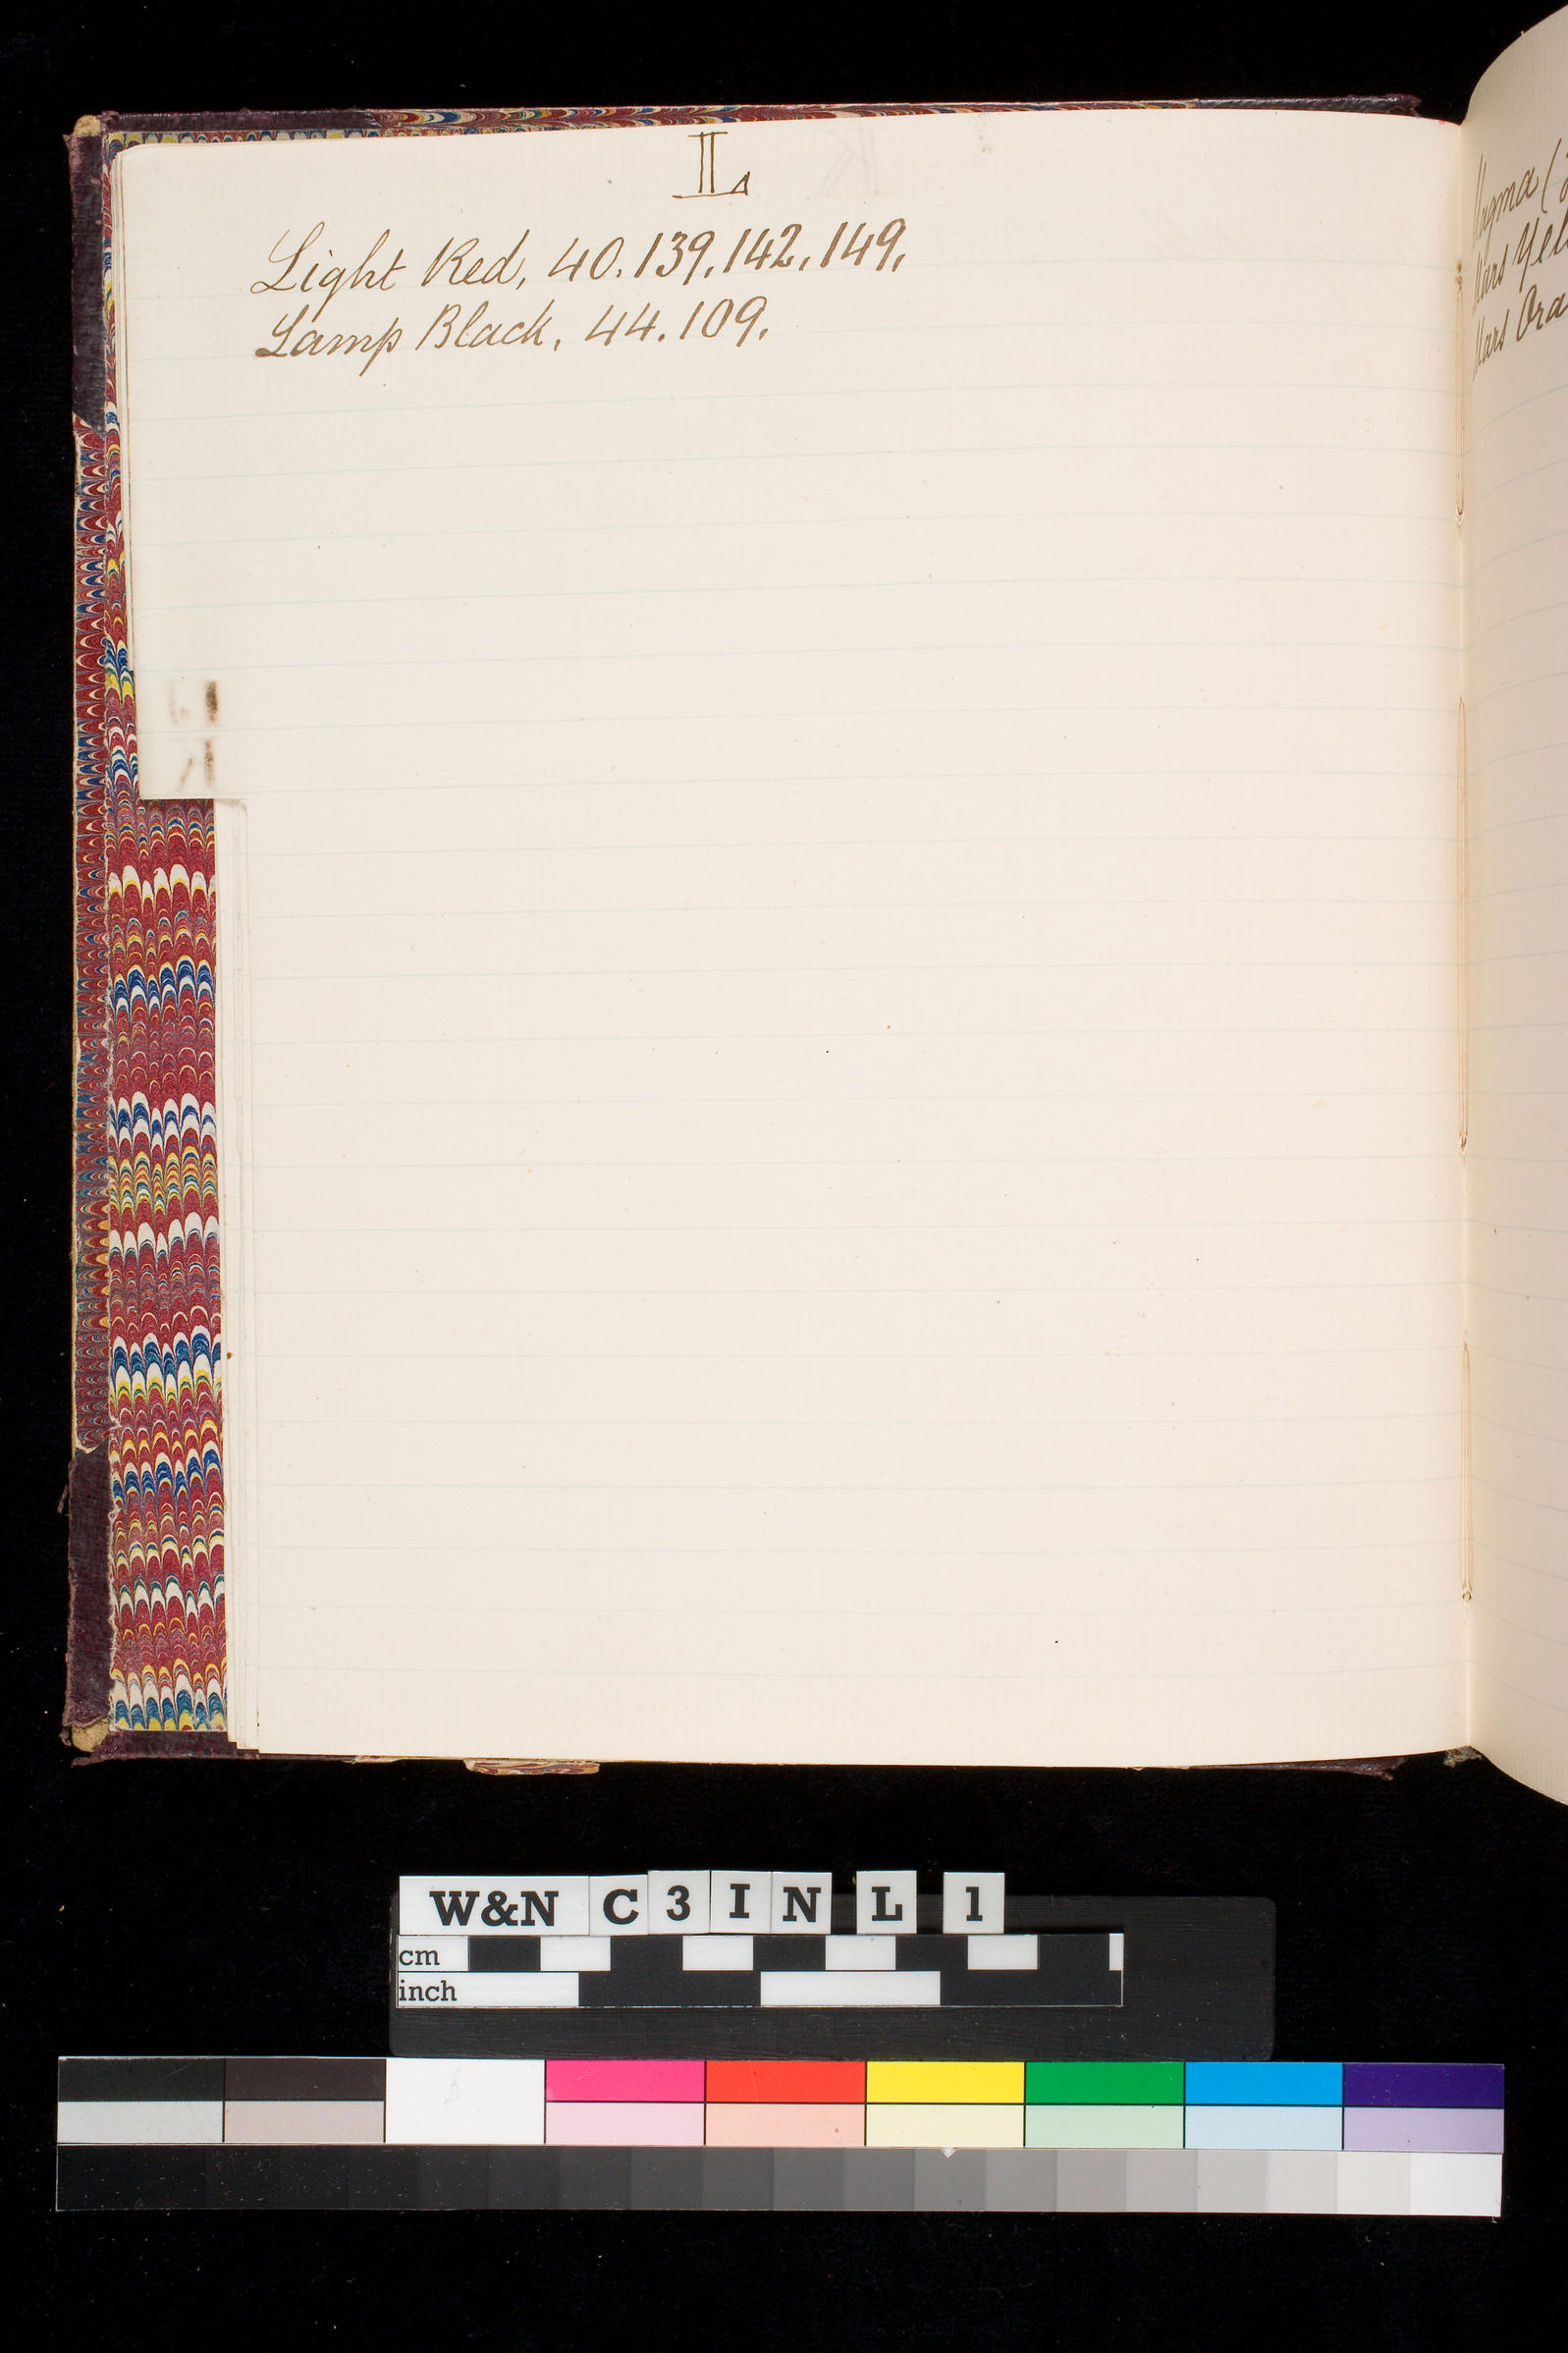 L
Light Red, 40.139.142.149.
Lamp Black, 44.109.
Mars Yel
Mars Ora
W&N C3IN L 1
cm
inch